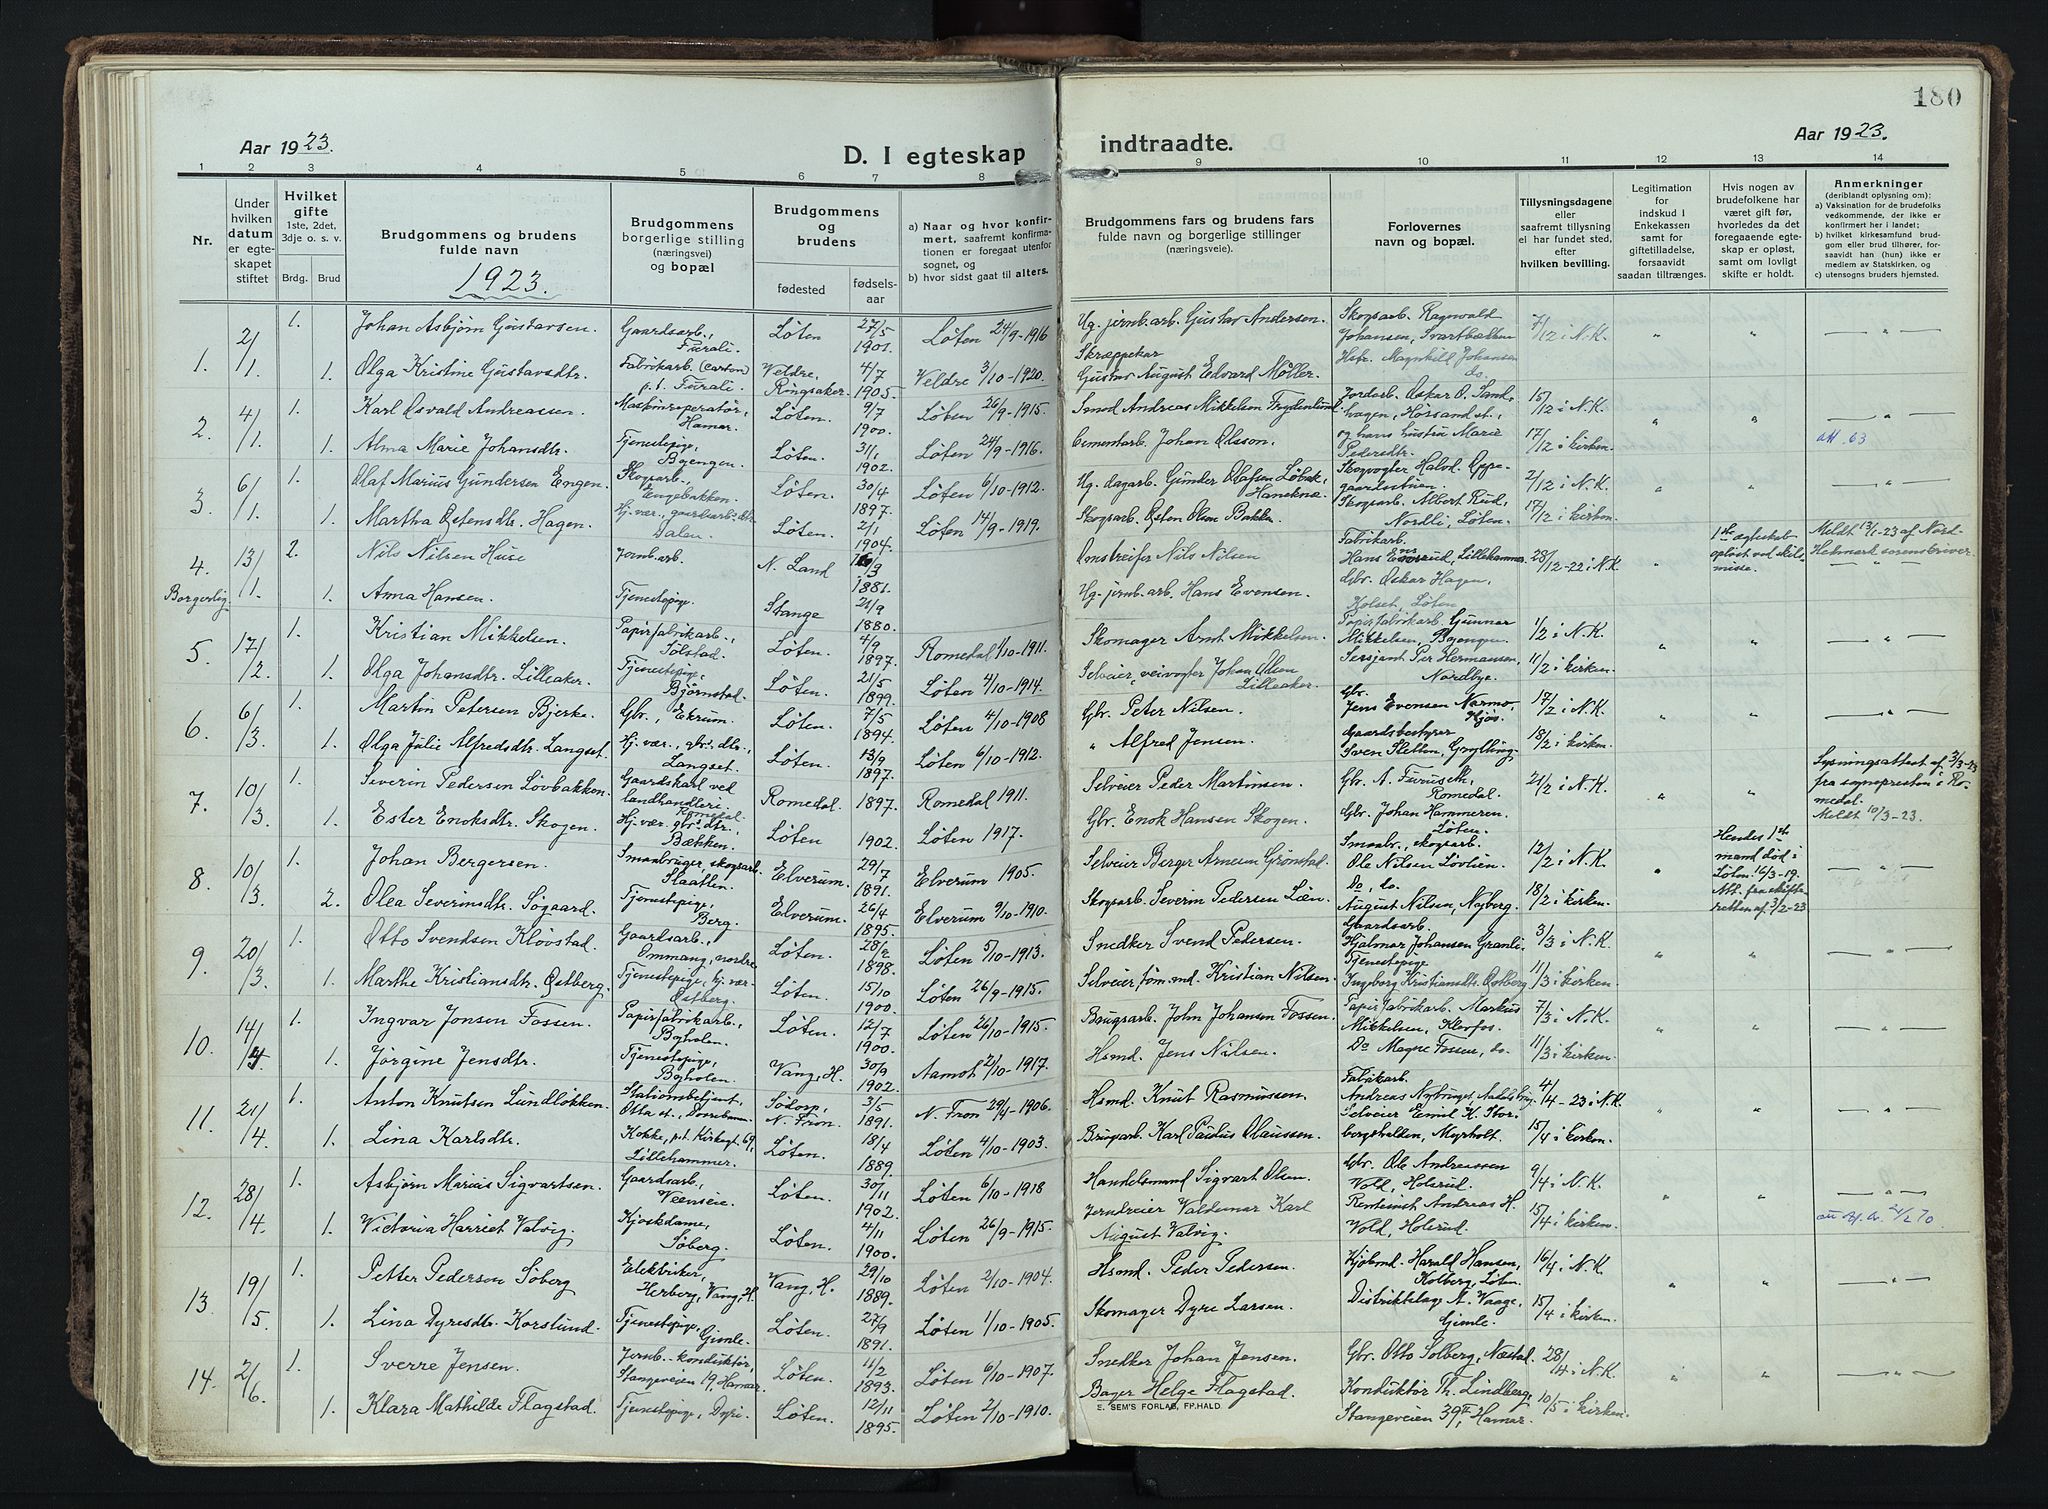 180
Aar 1923.
D. I egteskap
indtraadte.
Aar 1923.
1 2 3 4 5 6 7 8 9 10 11 12 13 14
Nr.
Under hvilken datum er egteskapet stiftet
Hvilket gifte 1ste, 2det, 3dje o. s. v.
Brdg. Brud
Brudgommens og brudens fulde navn
1923.
Brudgommens borgerlige stilling (næringsvei) og bopæl
Brudgommens og brudens
fødested
fødselsaar
a) Naar og hvor konfirmert, saafremt konfirmationen er foregaat utenfor sognet, og
b) hvor sidst gaat til alters.
Brudgommens fars og brudens fars fulde navn og borgerlige stillinger (næringsveie).
Forlovernes navn og bopæl.
Tillysningsdagene eller saafremt tillysning ei har fundet sted, efter hvilken bevilling.
Legitimation for indskud i Enkekassen samt for giftetilladelse, forsaavidt saadan tiltrænges.
Hvis nogen av brudefolkene har været gift før, hvorledes da det foregaaende egteskap er opløst, samt om lovligt skifte er holdt.
Anmerkninger (deriblandt oplysning om):
a) Vaksination for de brudefolks vedkommende, der ikke er konfirmert her i landet;
b) hvilket kirkesamfund brudgom eller brud tilhører, forsaavidt han (hun) ikke er medlem av Statskirken, og
c) utensogns bruders hjemsted.
1. 2/1 1. Johan Asbjørn Gustavsen. Gaardsarb., Furali. Løten 27/5 1901. Løten 24/9-1916 Ug. jernb.arb. Gustav Andersen. Skogsarb. Ragnvald Johansen, Svartbækken 7/12 i N.K. " "
1. Olga Kristine Gustavsdtr. Fabrikarb. (carton) p.t. Furali. Veldre, Ringsaker. 4/7 1905. Veldre 3/10-1920. Skræppekar Gustav August Edvard Möller. Hstr. Magnhild Johansen do.
2. 4/1. 1. Karl Osvald Andreassen. Maskinoperatør, Hamar. Løten. 9/7 1900. Løten 26/9-1915. Smed Andreas Mikkelsen Frydenlund. Jordarb. Oskar O. Sandhagen, Høssand st., 15/12 i N.K. " "
1. Alma Marie Johansdtr. Tjenestepige, Bøengen. Løten. 31/1 1902. Løten 24/9-1916. Cementarb. Johan Olsson. og hans hustru Marie Pedersdtr. 17/12 i kirken.
3. 6/1. 1. Olaf Marius Gundersen Engen. Skogsarb. Engebakken. Løten. 30/4 1897. Løten 6/10-1912. Ug. dagarb. Gunder Olafsen Løbak, Haneknæ. Skogvogter Halvd. Oppegaardsstuen. 2/12 i N.K. " "
1. Martha Østensdtr. Hagen. Hj. vær., gaardsarb.'s dtr. Dalen. Løten. 2/1 1904. Løten 14/9-1919. Skogsarb. Østen Olsen Bakken. Skogsarb. Albert Rud, Nordli, Løten. 17/12 i kirken.
4. 13/1. 2. Nils Nilsen Huse Jernb.arb. N. Land 1881. Omstreifer Nils Nilsen Fabrikarb. Hans Lillehammer 28/12-22 i N.K. " 1ste egteskab opløst ved skilsmisse. Meldt 13/1-23 af Nord-Hedmark sorenskriver.
Borgerlig 1. Anna Hansen. Tjenestepige. Stange 21/9 1880. Ug. jernb.arb. Hans Evensen. Gbr. Oskar Hagen, Kolset, Løten.
5. 17/2 1. Kristian Mikkelsen. Papirfabrikarb., Tølstad. Løten. 4/9 1897. Romedal 1/10-1911. Skomager Arnt Mikkelsen. Papirfabrikarb. Gunnar Mikkelsen, Bøengen. 1/2 i N.K. " "
1. Olga Johansdtr. Lilleaker. Tjenestepige, Bjørnstad. Løten. 21/5 1899. Løten 4/10-1914. Selveier, veivogter Johan Olsen Lilleaker. Sersjant Per Hermansen, Nordbye. 11/2 i kirken.
6. 6/3. 1. Martin Petersen Bjerke. Gbr., Ekrum. Løten. 7/5 1894. Løten 4/10-1908 Gbr. Peter Nilsen. Gbr. Jens Evensen Narmo, Kjøs. 17/2 i N.K. " "
1. Olga Julie Alfredsdtr. Langset. Hj. vær., gbr.'s dtr., Langset. Løten. 13/9 1897. Løten 6/10-1912. " Alfred Jensen. Gaardsbestyrer Sven Sletten, Grylling. 18/2 i kirken.
7. 10/3. 1. Severin Pedersen Løvbakken. Gaardskarl ved landhandleri. Romedal. Romedal 1897. Romedal 1911. Selveier Peder Martinsen. Gbr. A. Furuseth, Romedal. 21/2 i N.K. " " Lysningsattest af 3/3-23 fra sognepresten i Romedal. Meldt 10/3-23.
1. Ester Enoksdtr. Skogen. Hj. vær. gbr.'s dtr., Bækken. Løten 1902. Løten 1917. Gbr. Enok Hansen Skogen. Gbr. Johan Hammeren, Løten.
8. 10/3. 1. Johan Bergersen. Smaabruger, skogsarb. Slaatten. Elverum. 29/7 1891. Elverum 1905. Selveier Berger Arnesen Grønstad. Smaabr., skogsarb. Ole Nilsen Løvlien. 12/2 i N.K. " Hendes 1ste mand død i Løten 16/3-19. Att. fra skifteretten af 3/2-23
2. Olea Severinsdtr. Søgaard. Tjenestepige, Berg. Elverum. 26/4 1895. Elverum 9/10-1910. Skogsarb. Severin Pedersen Løen. Do, do. August Nilsen, Nyberg. 18/2 i kirken.
9. 20/3. 1. Otto Svendsen Kløvstad. Gaardsarb., Ommang, nordre Løten. 28/2 1898. Løten 5/10-1913. Snedker Svend Pedersen. Gaardsarb. Hjalmar Johansen Granli. 3/3 i N.K. " "
1. Marthe Kristiansdtr. Østberg. Tjenestepige, hj. vær. Østberg. Løten. 15/10 1900. Løten 26/9-1915. Selveier, tøm.md. Kristian Nilsen. Tjenestepige Ingeborg Kristiansdtr. Østberg 11/3 i kirken
10. 14/4 1. Ingvar Jonsen Fossen. Papirfabrikarb., Bøholen. Løten. 12/7 1900. Løten 26/10-1915. Brugsarb. John Johansen Fossen. Papirfabrikarb. Markus Mikkelsen, Klevfos. 7/3 i N.K. " "
1. Jørgine Jensdtr. Tjenestepige, Bøholen. Vang, H. 30/9 1902. Aamot 21/10-1917. Hsmd. Jens Nilsen. Do Magne Fossen, do. 11/3 i kirken.
11. 21/4. 1. Anton Knutsen Lundløkken. Stationsbetjent, Otta st., Dovrebanen. Sødorp, N. Fron. 3/5 1891. N. Fron 29/4-1906. Hsmd. Knut Rasmussen. Fabrikarb. Andreas Nybruget, Aadalsbrug. 4/4-23 i N.K. " "
1. Lina Karlsdtr. Kokke, p.t. Kirkegt. 69, Lillehammer. Løten. 18/4 1889. Løten 4/10-1903. Brugarb. Karl Paulus Olaussen. Selveier Emil K. Storbergshalden, Myrholt. 15/4 i kirken.
12. 28/4. 1. Asbjørn Marius Sigvartsen. Gaardsarb., Veenseie. Løten. 30/11 1902. Løten 6/10-1918 Handelsmand Sigvart Olsen. Gbr. Ole Andreassen Vold, Holsrud. 9/4 i N.K. " "
1. Victoria Harriet Valvig. Kjoskdame, Søberg. Løten. 4/11 1900. Løten 26/9-1915. Jerndreier Valdemar Karl August Valvig. Rentenist Andreas H. Vold, Holsrud. 15/4 i kirken.
13. 19/5. 1. Petter Pedersen Søberg Elektriker, Herberg, Vang, H. Vang, H. 29/10 1889. Løten 2/10-1904. Hsmd. Peder Pedersen. Kjøbmd. Harald Hansen, Kolberg, Løten. 16/4 i N.K. " "
1. Lina Dyresdtr. Korslund. Tjenestepige, Gimle. Løten. 27/9 1891. Løten 1/10-1905. Skomager Dyre Larsen. Distriktslæge A. Waage, Gimle. 15/4 i kirken.
14. 2/6. 1. Sverre Jensen. Jernb.-konduktør, Stangeveien 19, Hamar. Løten. 11/2 1893. Løten 6/10-1907. Snedker Johan Jensen. Gbr. Otto Solberg, Næstad. 28/4 i N.K. " "
1. Klara Mathilde Flagstad. Tjenestepige, Dyri. Løten. 12/11 1895. Løten 2/10-1910. Bager Helge Flagstad. Konduktør Th. Lindberg, Stangeveien 39 II, Hamar. 10/5 i kirken.
E. SEM'S FORLAG, FR.HALD.